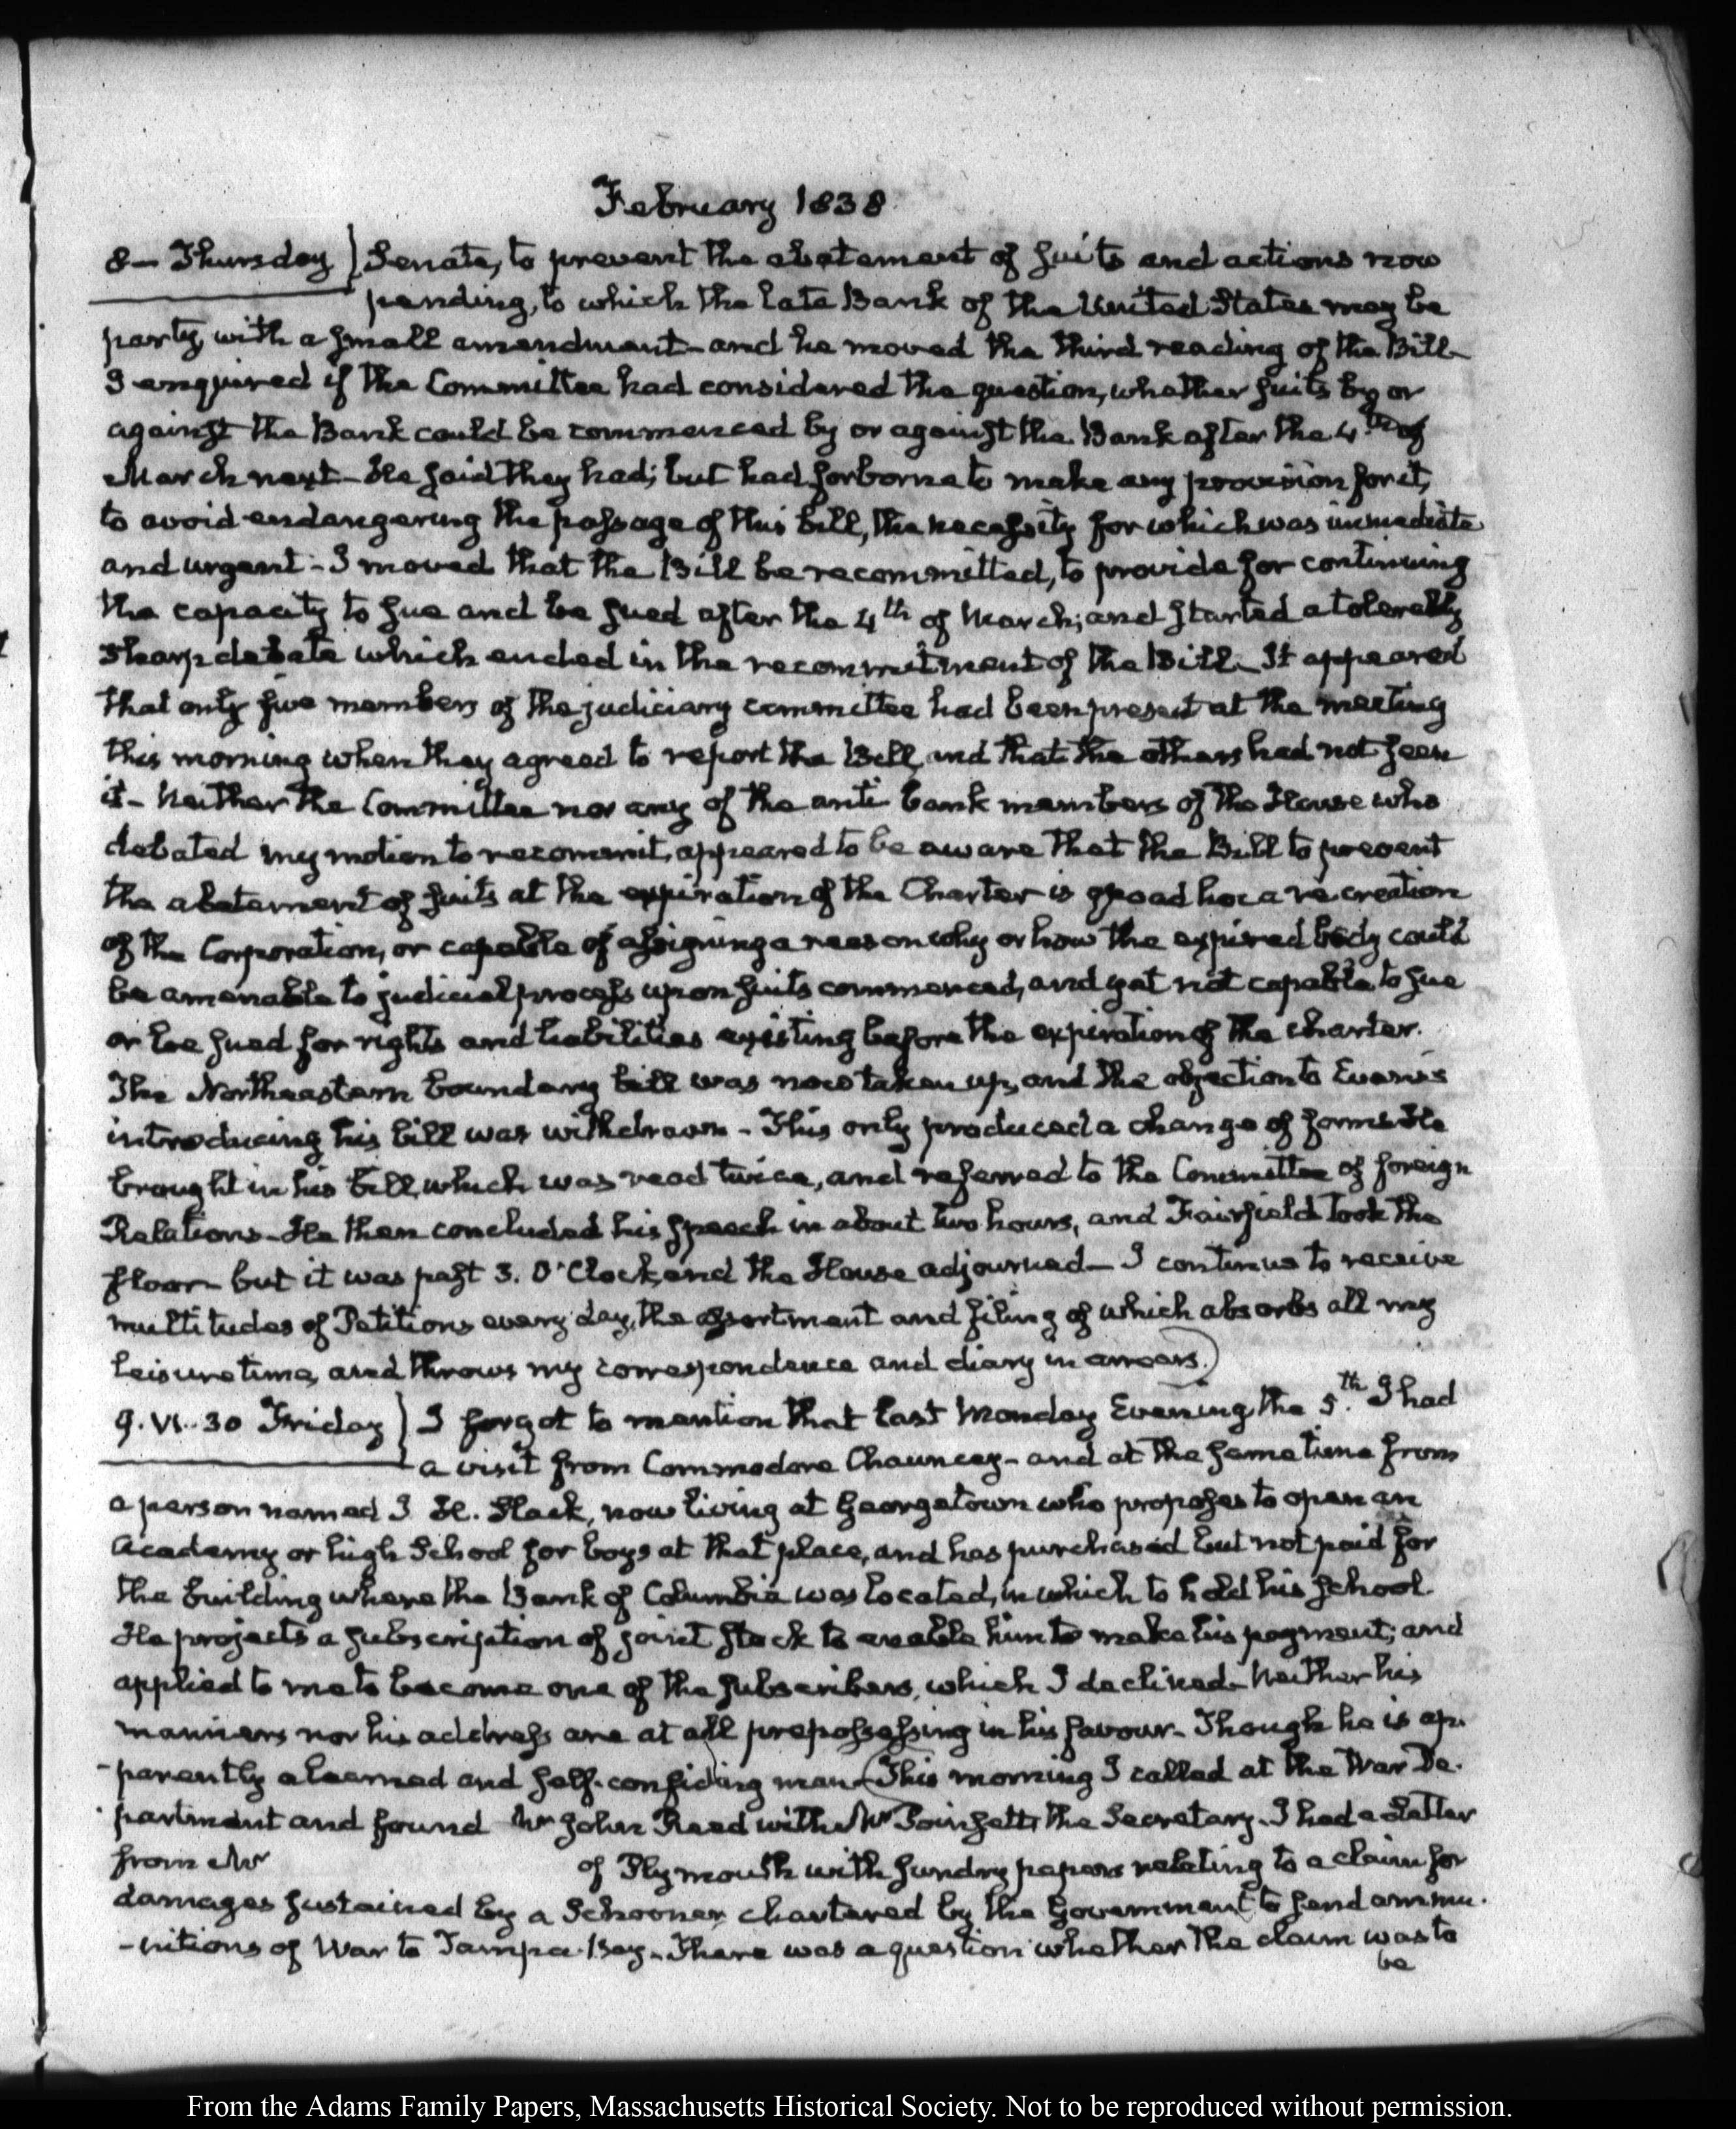 February 1838
8 — Thursday } Senate, to prevent the abatement of suits and actions now
pending, to which the late Bank of the United States may be
party, with a small amendment — and he moved the third reading of the Bill —
I enquired if the Committee had considered the question, whether suits by or
against the Bank could be commenced by or against the Bank after the 4th. of
March next — He said they had; but had forborne to make any provision for it,
to avoid endangering the passage of this bill, the necessity for which was immediate
and urgent — I moved that the Bill be recommitted, to provide for continuing
the capacity to sue and be sued after the 4th of March; and started a tolerably
sharp debate which ended in the recommitment of the Bill — It appeared
that only five members of the judiciary committee had been present at the meeting
this morning when they agreed to report the Bill, and that the others had not seen
it — Neither the Committee nor any of the anti bank members of the House who
debated my motion to recommit, appeared to be aware that the Bill to prevent
the abatement of suits at the expiration of the Charter is quoad hoc a re creation
of the Corporation, or capable of assigning a reason why or how the expired body could
be amenable to judicial process upon suits commenced, and yet not capable to sue
or be sued for rights and liabilities existing before the expiration of the charter.
The Northeastern boundary bill was now taken up, and the objection to Evans's
introducing his bill was withdrawn — This only produced a change of forms. He
brought in his bill, which was read twice, and referred to the Committee of foreign
Relations — He then concluded his speech in about two hours, and Fairfield took the
floor — but it was past 3. O'Clock and the House adjourned — I continue to receive
multitudes of Petitions every day, the assortment and filing of which absorbs all my
leisure time, and throws my correspondence and diary in arrears.)
9. VI..30 Friday } I forgot to mention that last Monday Evening the 5.th I had
a visit from Commodore Chauncey — and at the same time from
a person named J H. Slack, now living at Georgetown who proposes to open an
Academy or high School for boys at that place, and has purchased but not paid for
the building where the Bank of Columbia was located, in which to hold his school
He projects a subscription of joint stock to enable him to make his payment; and
applied to me to become one of the subscribers, which I declined — Neither his
manners nor his address are at all prepossessing in his favour — Though he is ap-
-parently a learned and self-confiding man — (This morning I called at the War De-
partment and found Mr John Reed with Mr Poinsett, the Secretary — I had a Letter
from Mr of Plymouth with sundry papers relating to a claim for
damages sustained by a Schooner, chartered by the Government to send ammu-
-nitions of War to Tampa Bay — There was a question whether the claim was to
be
From the Adams Family Papers, Massachusetts Historical Society. Not to be reproduced without permission.